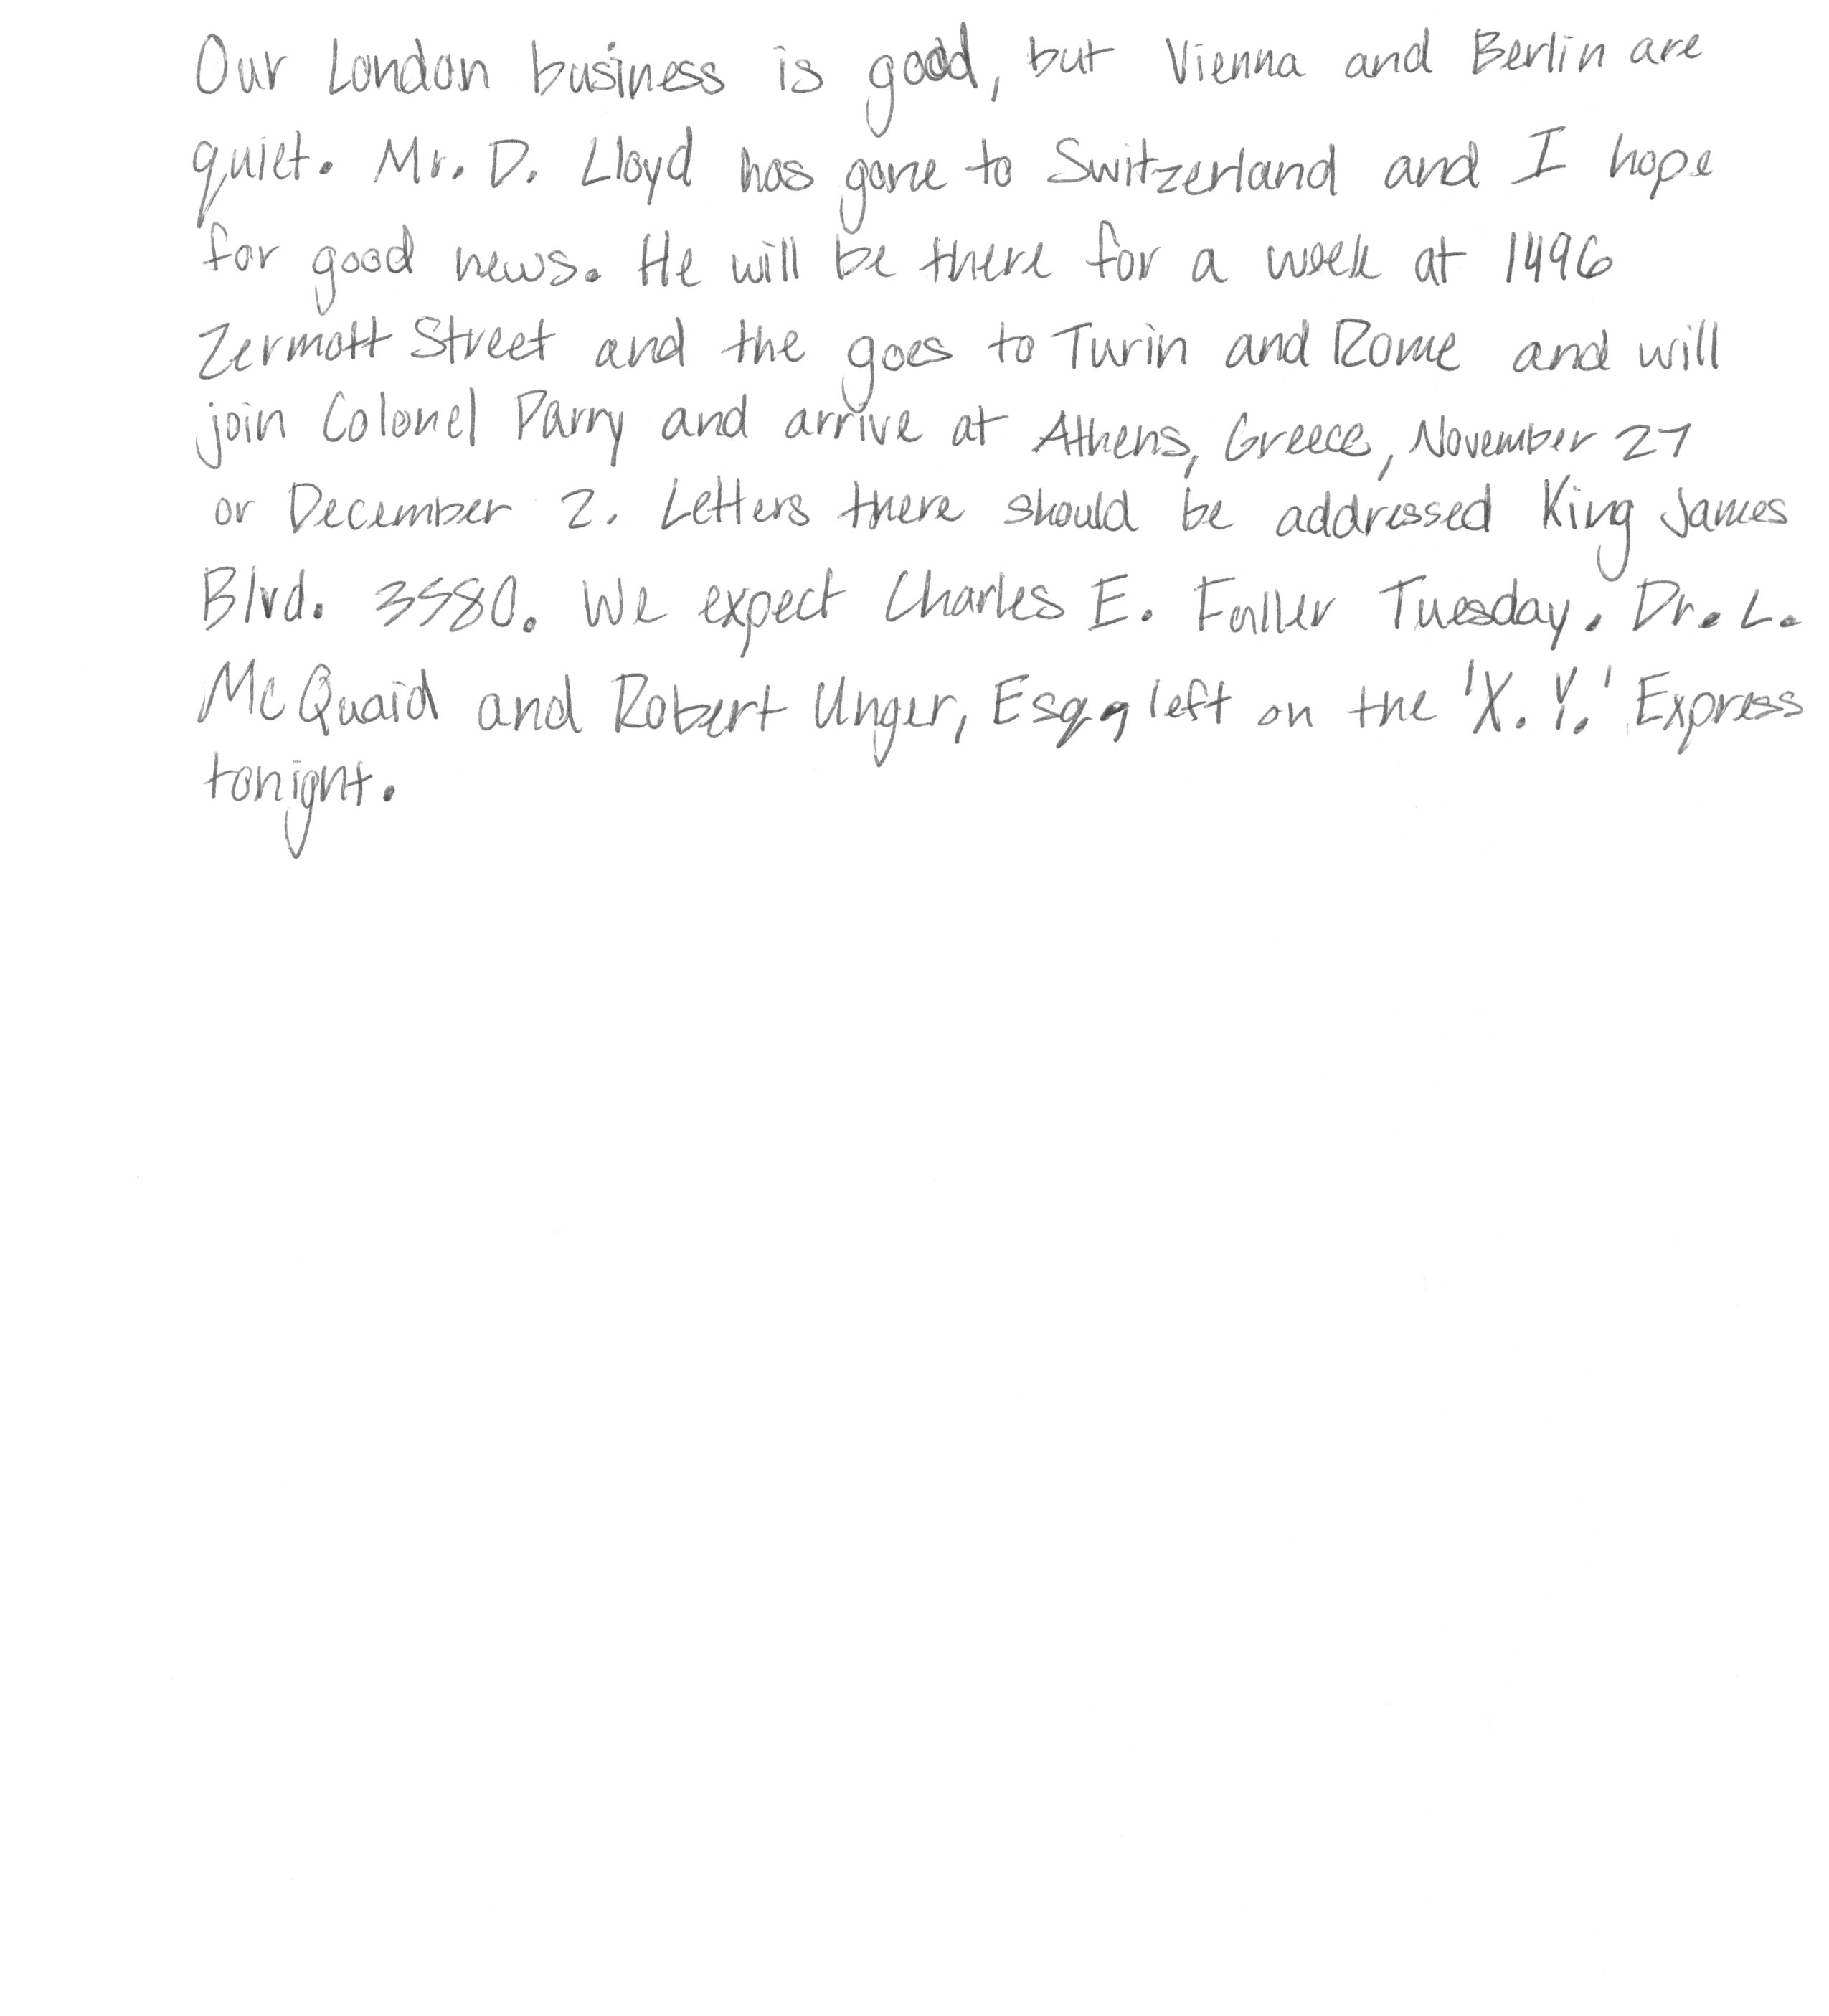 Our London business is good, but Vienna and Berlin are
quiet. Mr. D. Lloyd has gone to Switzerland and I hope
for good news. He will be there for a week at 1496
Zermott Street and the goes to Turin and Rome and will
join Colonel Parry and arrive at Athens, Greece, November 27
or December 2. Letters there should be addressed King James
Blvd. 3580. We expect Charles E. Fuller Tuesday. Dr. L.
McQuaid and Robert Unger, Esq., left on the 'X. Y.' Express
tonight.